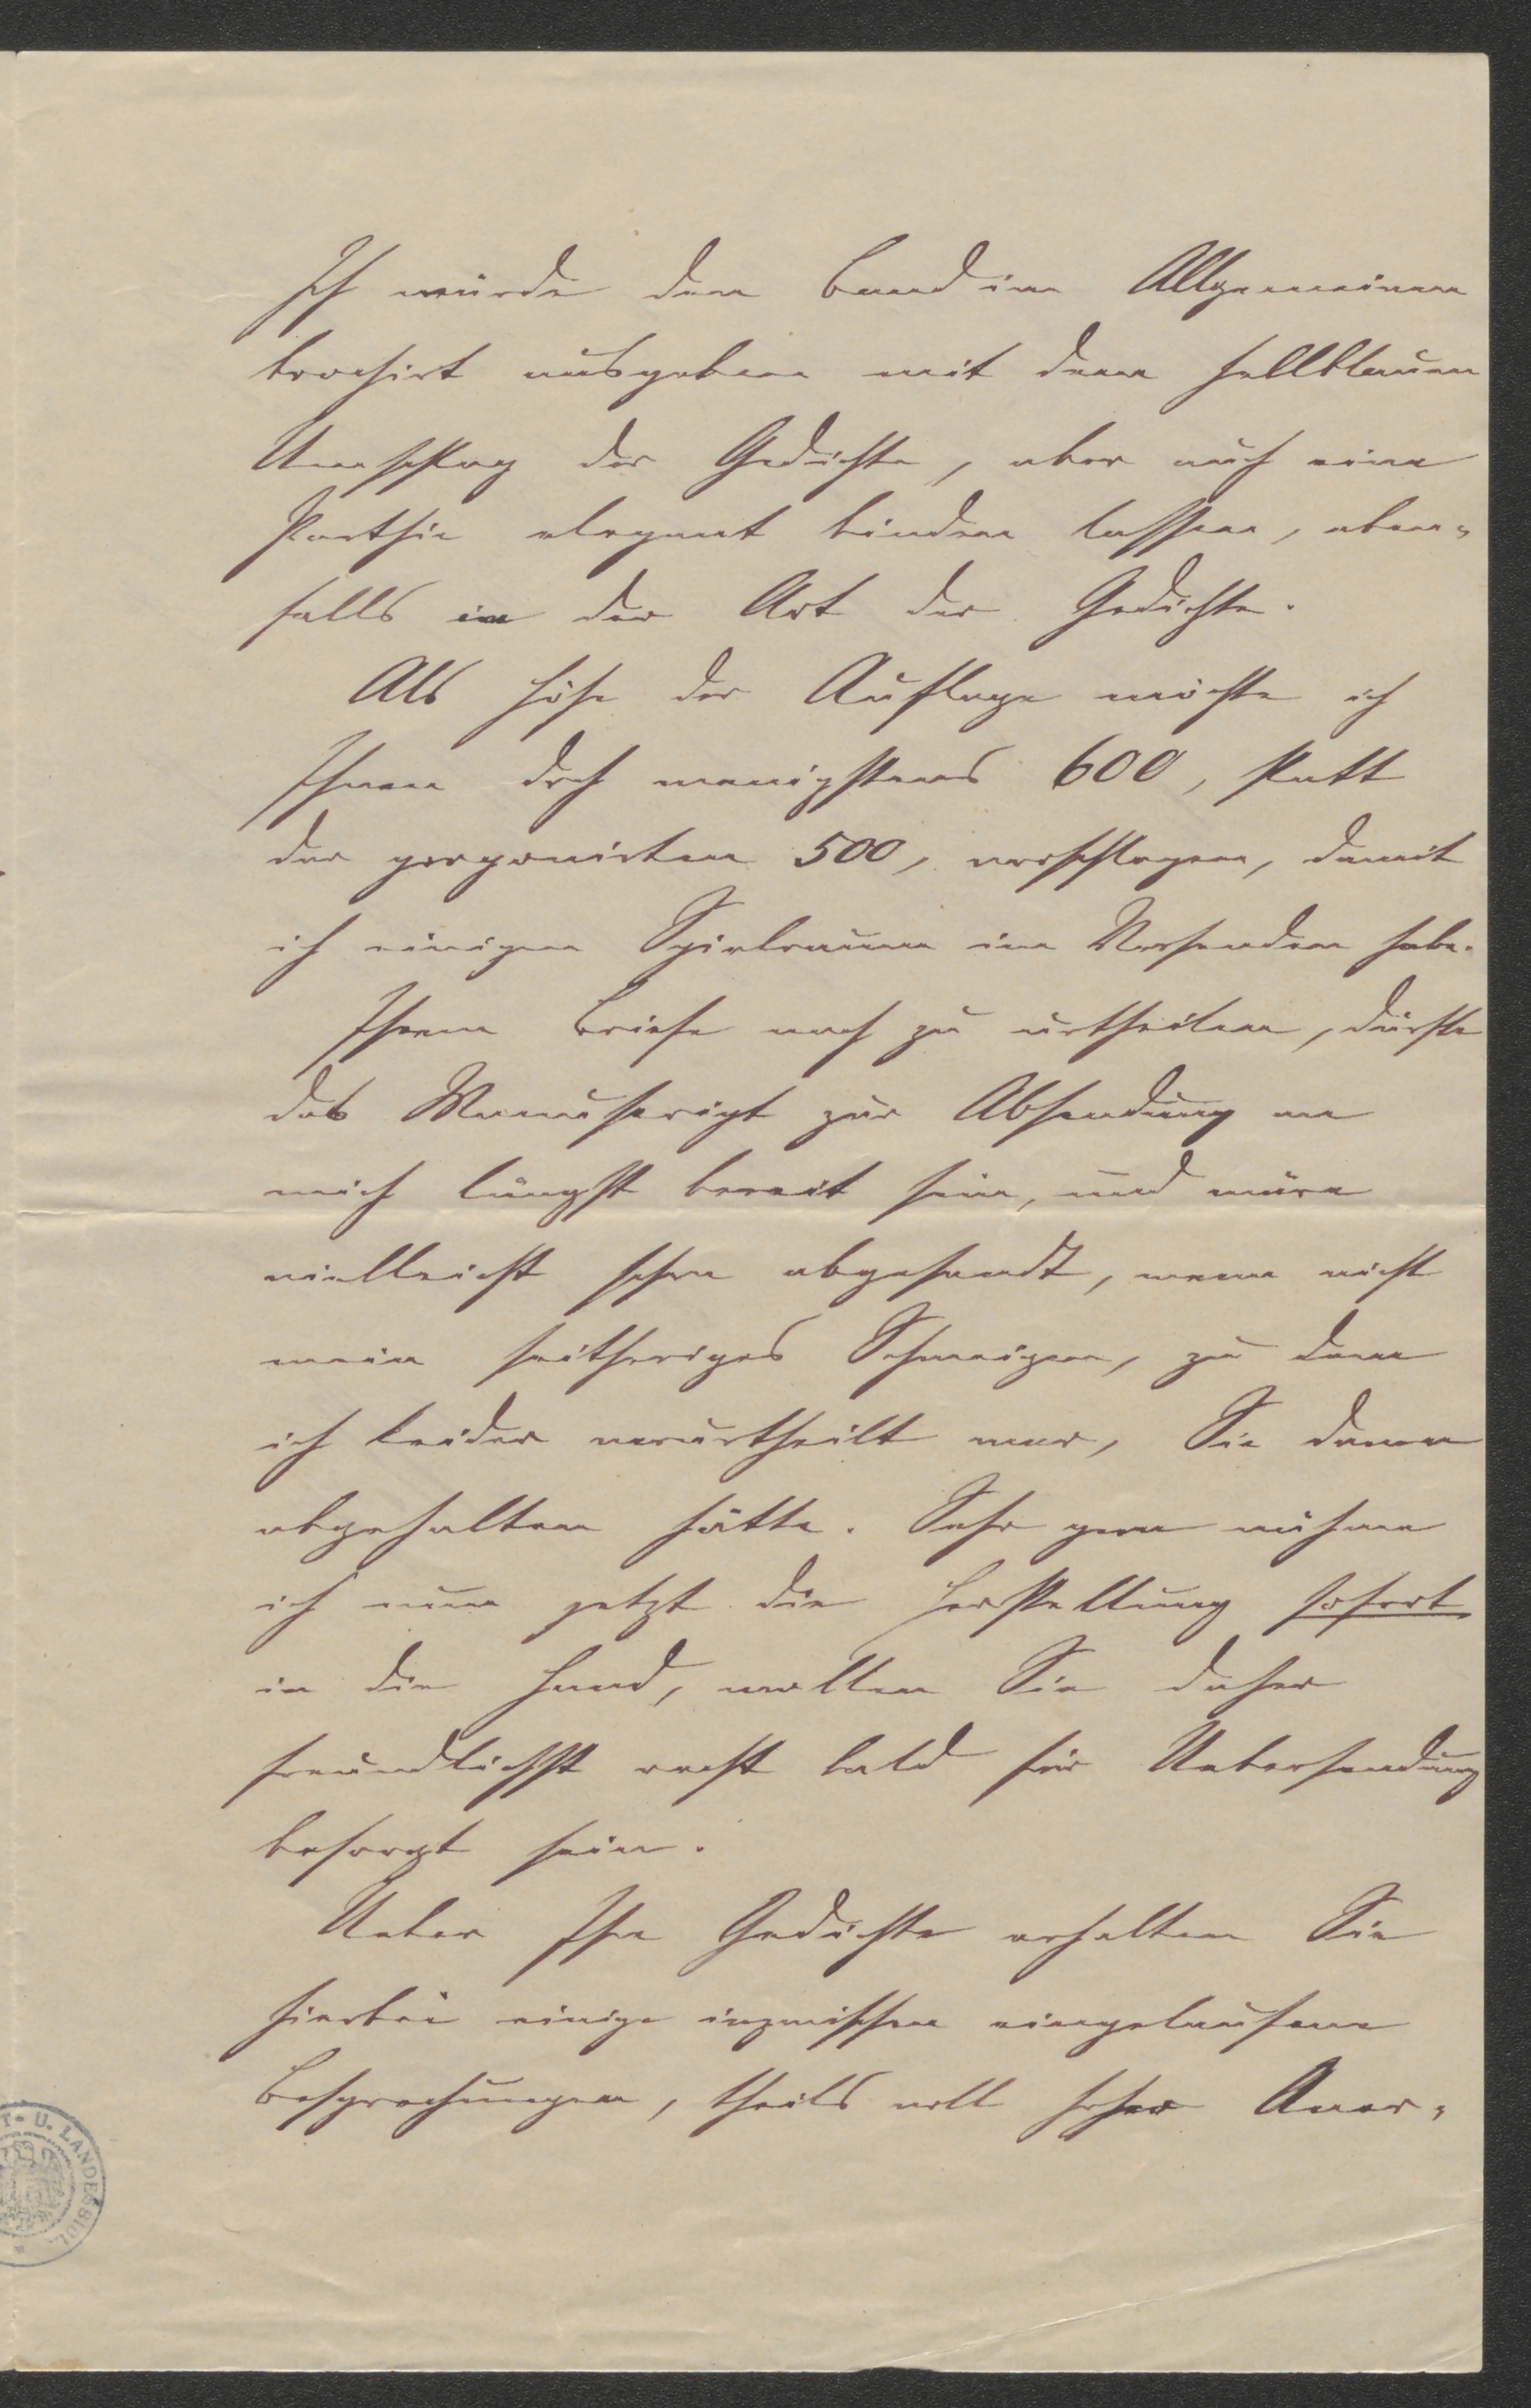 Ich würde den Band im Allgemeinen
brochirt ausgeben mit dem hellblauen
Umschlag der Gedichte, aber auch eine
Parthie elegant binden lassen, eben-
falls in der Art der Gedichte.
Als Höhe der Auflage möchte ich
Ihnen doch wenigstens 600, statt
der proponirten 500, vorschlagen, damit
ich einigen Spielraum im Versenden habe.
Ihrem Briefe nach zu urtheilen, dürfte
das Manuscript zur Absendung an
mich längst bereit sein, und wäre
vielleicht schon abgesandt, wenn nicht
mein seitheriges Schweigen, zu dem
ich leider verurtheilt war, Sie davon
abgehalten hätte. Sehr gern nähme
ich nun jetzt die Herstellung sofort
in die Hand, wollen Sie daher
freundlichst recht bald für Uebersendung
besorgt sein.
Ueber Ihre Gedichte erhalten Sie
hierbei einige inzwischen eingelaufene
Besprechungen, theils voll hoher Aner-
T- U. LANDESBIBL.